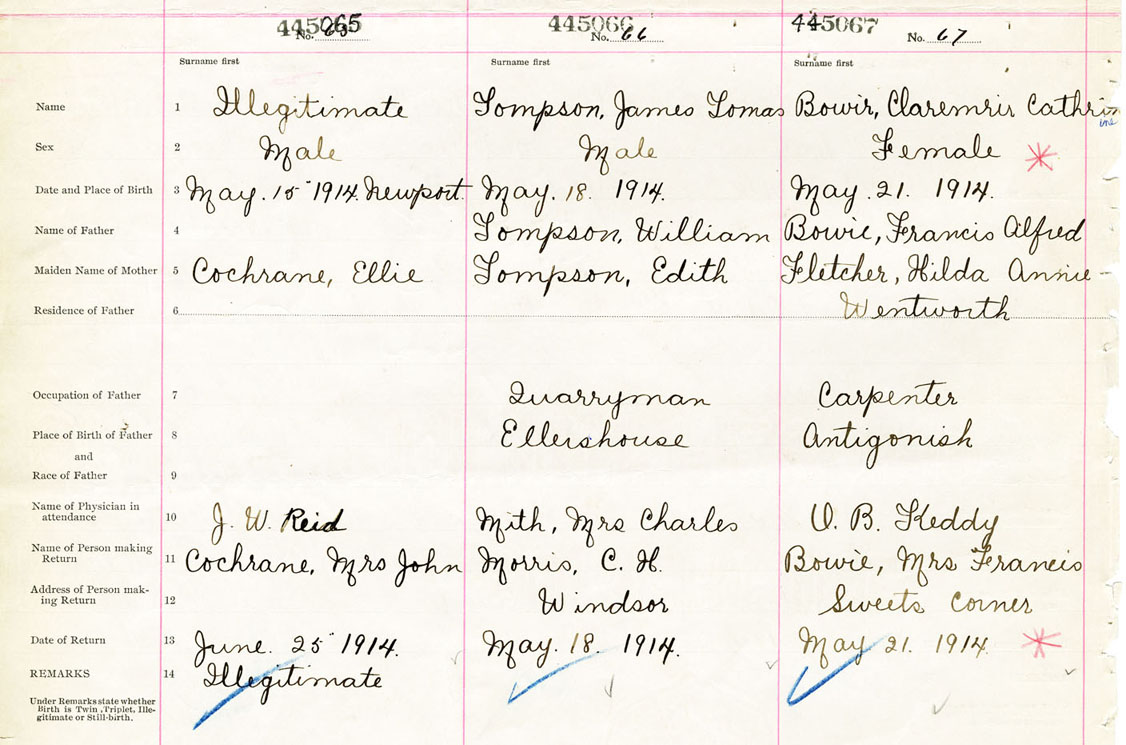 445065 445066 445067
No. 65 No. 66 No. 67
Surname first Surname first Surname first
Name 1 Illegitimate Tompson, James Tomas Bowir, Claremrir Cathrin
ine
Sex 2 Male Male Female
Date and Place of Birth 3 May. 15 1914. Newport. May. 18. 1914. May. 21. 1914.
Name of Father 4 Tompson, William Bowie, Francis Alfred
Maiden Name of Mother 5 Cochrane, Ellie Tompson, Edith Fletcher, Hilda Annie
Residence of Father 6 Wentworth
Occupation of Father 7 Quarryman Carpenter
Place of Birth of Father 8 Ellershouse Antigonish
and
Race of Father 9
Name of Physician in
attendance 10 J. W. Reid Mith, Mrs Charles O. B. Keddy
Name of Person making
Return 11 Cochrane, Mrs John Morris, C. H. Bowie, Mrs Francis
Address of Person mak-
ing Return 12 Windsor Sweets Corner
Date of Return 13 June. 25 1914. May. 18. 1914. May 21. 1914.
REMARKS 14 Illegitimate
Under Remarks state whether
Birth is Twin, Triplet, Ille-
gitimate or Still-birth.